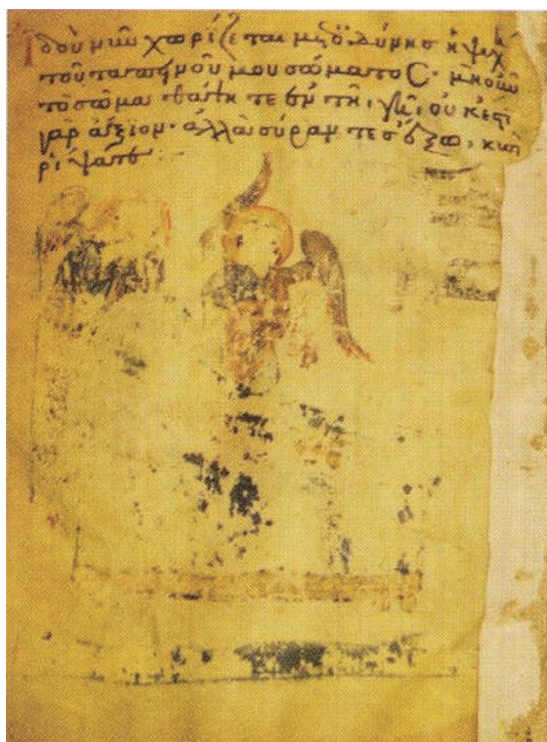 Ἰδοὺ νῦν χωρίζεται μετ ὀδύνης ἡ ψυχὴ
τοῦ ταπεινοῦ μου σώματος· μὴ οὖν
τὸ σῶμα θάπτητε ἐν τῆι γῆι· οὐκ ἔστι
γὰρ ἄξιον· ἀλλὰ σύραντες ἔξω, κυσὶ
ρίψατε